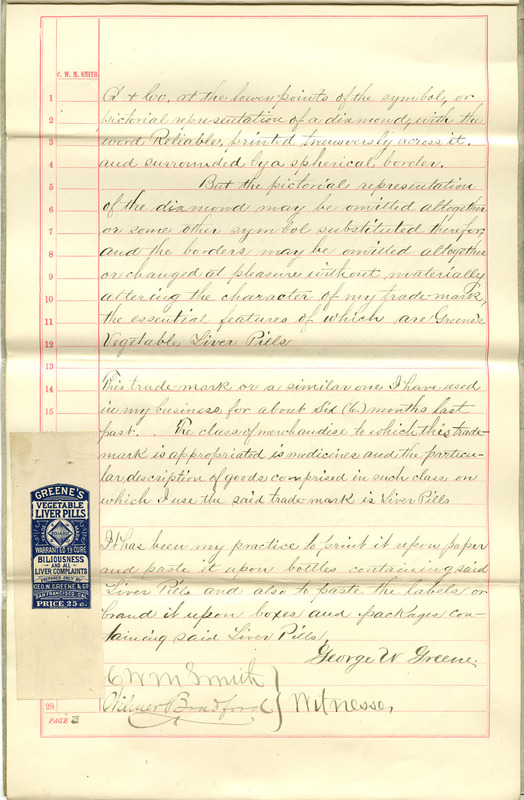 C. W. M. SMITH
1 G & Co, at the lower points of the symbol, or
2 pictorial representation of a diamond, with the
3 word Reliable, printed transversly across it,
4 and surrounded by a spherical border.
5 But the pictorial representation
6 of the diamond may be omitted altogether
7 or some other symbol substituted therefor,
8 and the borders may be omitted altogether
9 or changed at pleasure without materially
10 altering the character of my trade-mark,
11 the essential features of which are Greene's
12 Vegetable Liver Pills
14 This trade-mark or a similar one I have used
15 in my business for about Six (6.) months last
past. The class of merchandise to which this trade-
mark is appropriated is medicines and the particu-
lar description of goods comprised in such class on
which I use the said trade-mark is Liver Pills
It has been my practice to print it upon paper
and paste it upon bottles containing said
Liver Pills and also to paste the labels or
brand it upon boxes and packages con-
taining said Liver Pills,
George W Greene.
C W M Smith
Wilmer Bradford } Witnesses,
28
PAGE 3
GREENE'S
VEGETABLE
LIVER PILLS
RELIABLE
WARRANTED TO CURE
BILIOUSNESS
AND ALL
LIVER COMPLAINTS
PREPARED ONLY BY
GEO. W. GREENE & CO
SAN FRANCISCO, CAL.
PRICE 25 c.